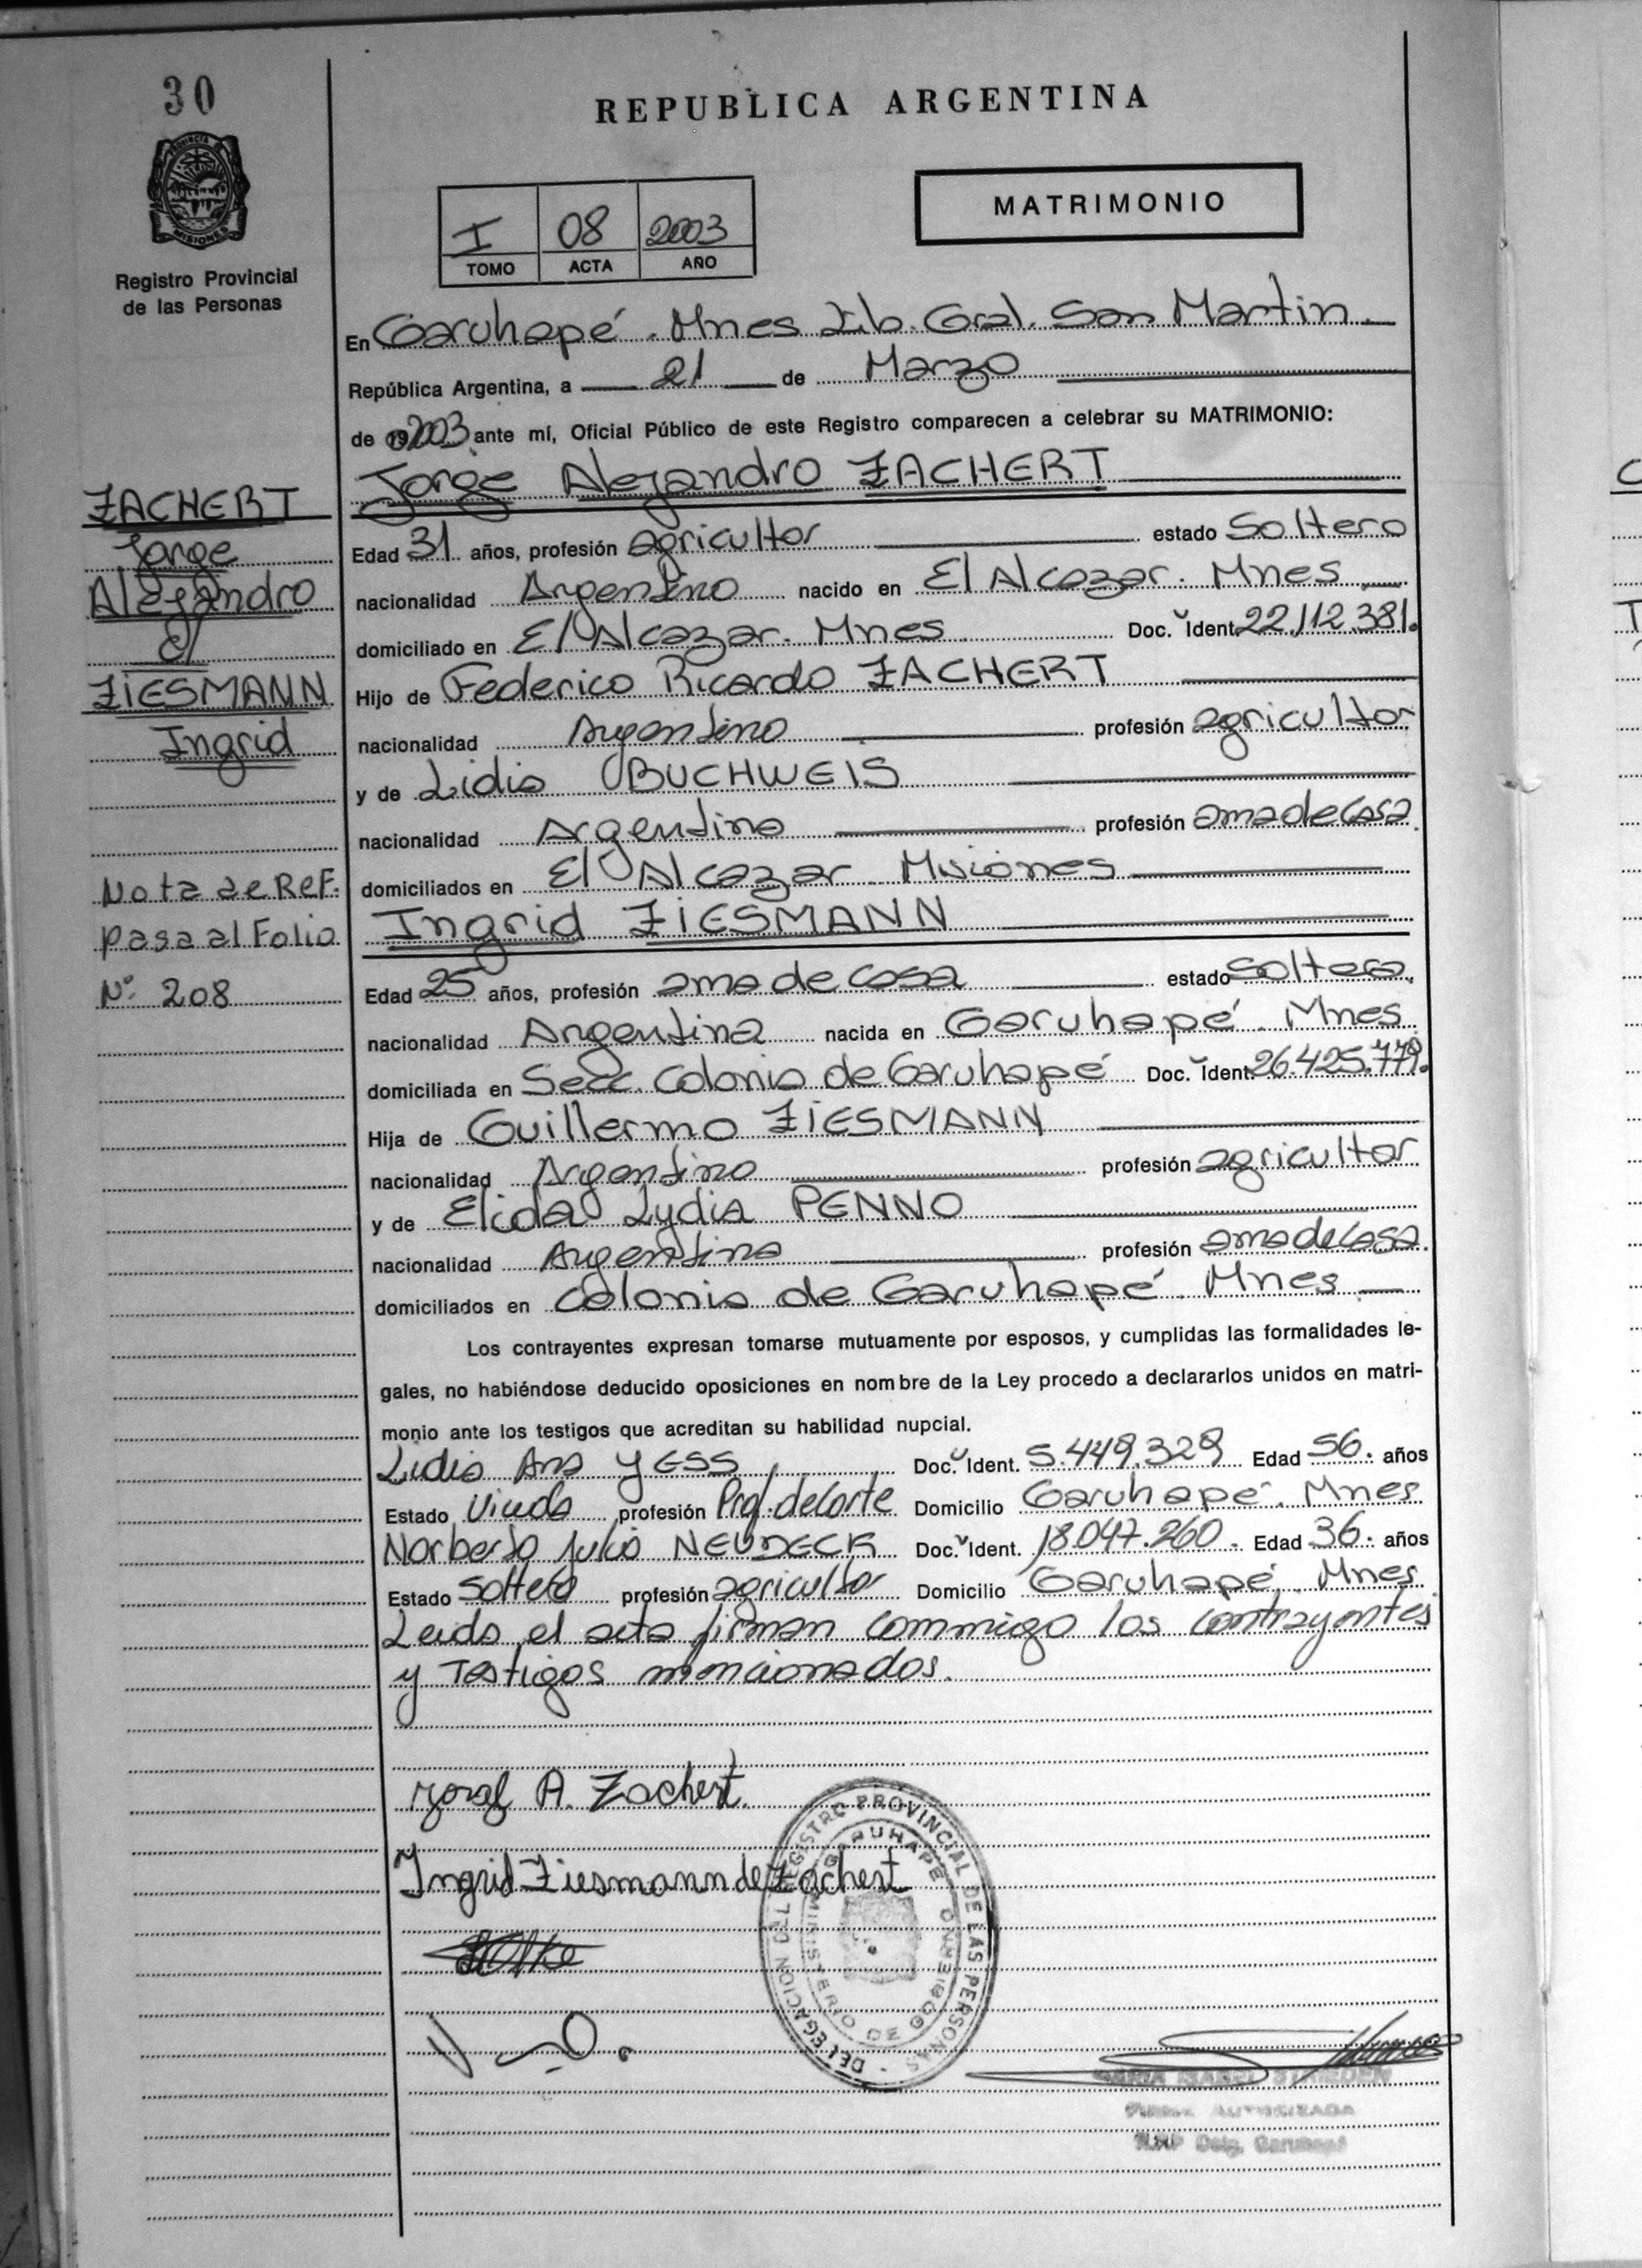 30
REPUBLICA ARGENTINA
PROVINCIA DE
MISIONES
Registro Provincial
de las Personas
MATRIMONIO
I 08 2003
TOMO ACTA AÑO
En Garuhapé. Mnes Lib. Gral. San Martin.
República Argentina, a 21 de Marzo
de 2003 ante mí, Oficial Público de este Registro comparecen a celebrar su MATRIMONIO:
Jorge Alejandro ZACHERT
Edad 31 años, profesión agricultor estado Soltero
nacionalidad Argentino nacido en El Alcazar. Mnes
domiciliado en El Alcazar. Mnes Doc. Ident. 22.112.381.
Hijo de Federico Ricardo ZACHERT
nacionalidad Argentino profesión agricultor
y de Lidia BUCHWEIS
nacionalidad Argentina profesión ama de casa
domiciliados en El Alcazar Misiones
Ingrid ZIESMANN
Edad 25 años, profesión ama de casa estado soltera.
nacionalidad Argentina nacida en Garuhapé. Mnes
domiciliada en Secc. Colonia de Garuhapé Doc. Ident. 26.425.779.
Hija de Guillermo ZIESMANN
nacionalidad Argentino profesión agricultor
y de Elida Lydia PENNO
nacionalidad Argentina profesión ama de casa.
domiciliados en Colonia de Garuhapé. Mnes
Los contrayentes expresan tomarse mutuamente por esposos, y cumplidas las formalidades le-
gales, no habiéndose deducido oposiciones en nombre de la Ley procedo a declararlos unidos en matri-
monio ante los testigos que acreditan su habilidad nupcial.
Lidia Ana YESS Doc. Ident. 5.449.329 Edad 56. años
Estado Viuda profesión Prof. de Corte Domicilio Garuhapé. Mnes
Norberto Julio NEUDECK Doc. Ident. 18.047.260. Edad 36. años
Estado Soltero profesión agricultor Domicilio Garuhapé. Mnes
Leida el acta firman commigo los contrayentes
y Testigos mencionados.
ZACHERT
Jorge
Alejandro
c/
ZIESMANN
Ingrid
Nota de Ref.
pasa al Folio
N° 208
A. Zachert.
Ingrid Ziesmann de Zachert
DELEGACION DEL REGISTRO PROVINCIAL DE LAS PERSONAS
GARUHAPE
MINISTERIO DE GOBIERNO
MARIA ISABEL
FIRMA AUTORIZADA
Deleg. Garuhapé